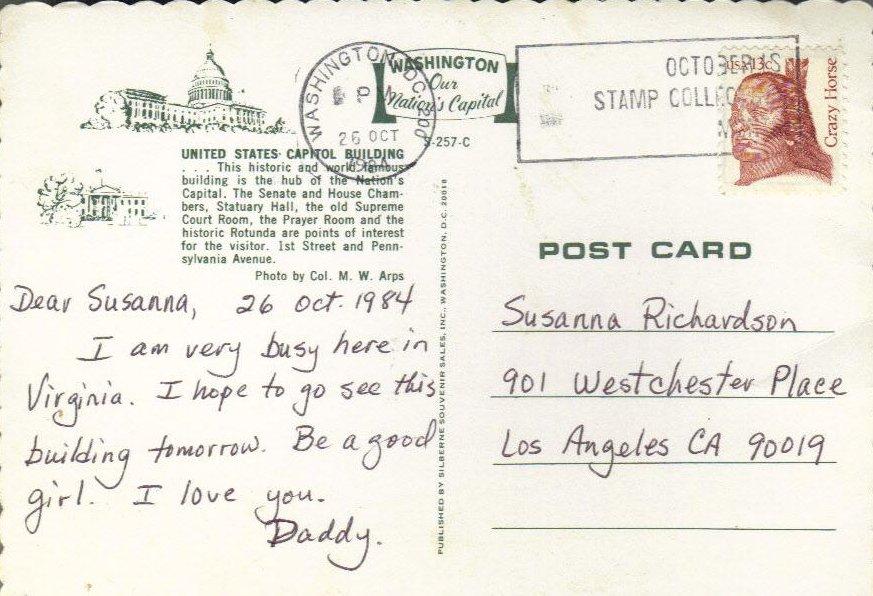 WASHINGTON, D.C. 200
P M
26 OCT
1984
WASHINGTON
Our
Nation's Capital
S-257-C
OCTOBER IS
STAMP COLLEC
USA 13c
Crazy Horse
UNITED STATES CAPITOL BUILDING
. . . This historic and world famous
building is the hub of the Nation's
Capital. The Senate and House Cham-
bers, Statuary Hall, the old Supreme
Court Room, the Prayer Room and the
historic Rotunda are points of interest
for the visitor. 1st Street and Penn-
sylvania Avenue.
Photo by Col. M. W. Arps
Dear Susanna, 26 Oct. 1984
I am very busy here in
Virginia. I hope to go see this
building tomorrow. Be a good
girl. I love you.
Daddy.
PUBLISHED BY SILBERNE SOUVENIR SALES, INC., WASHINGTON, D.C. 20018
POST CARD
Susanna Richardson
901 Westchester Place
Los Angeles CA 90019